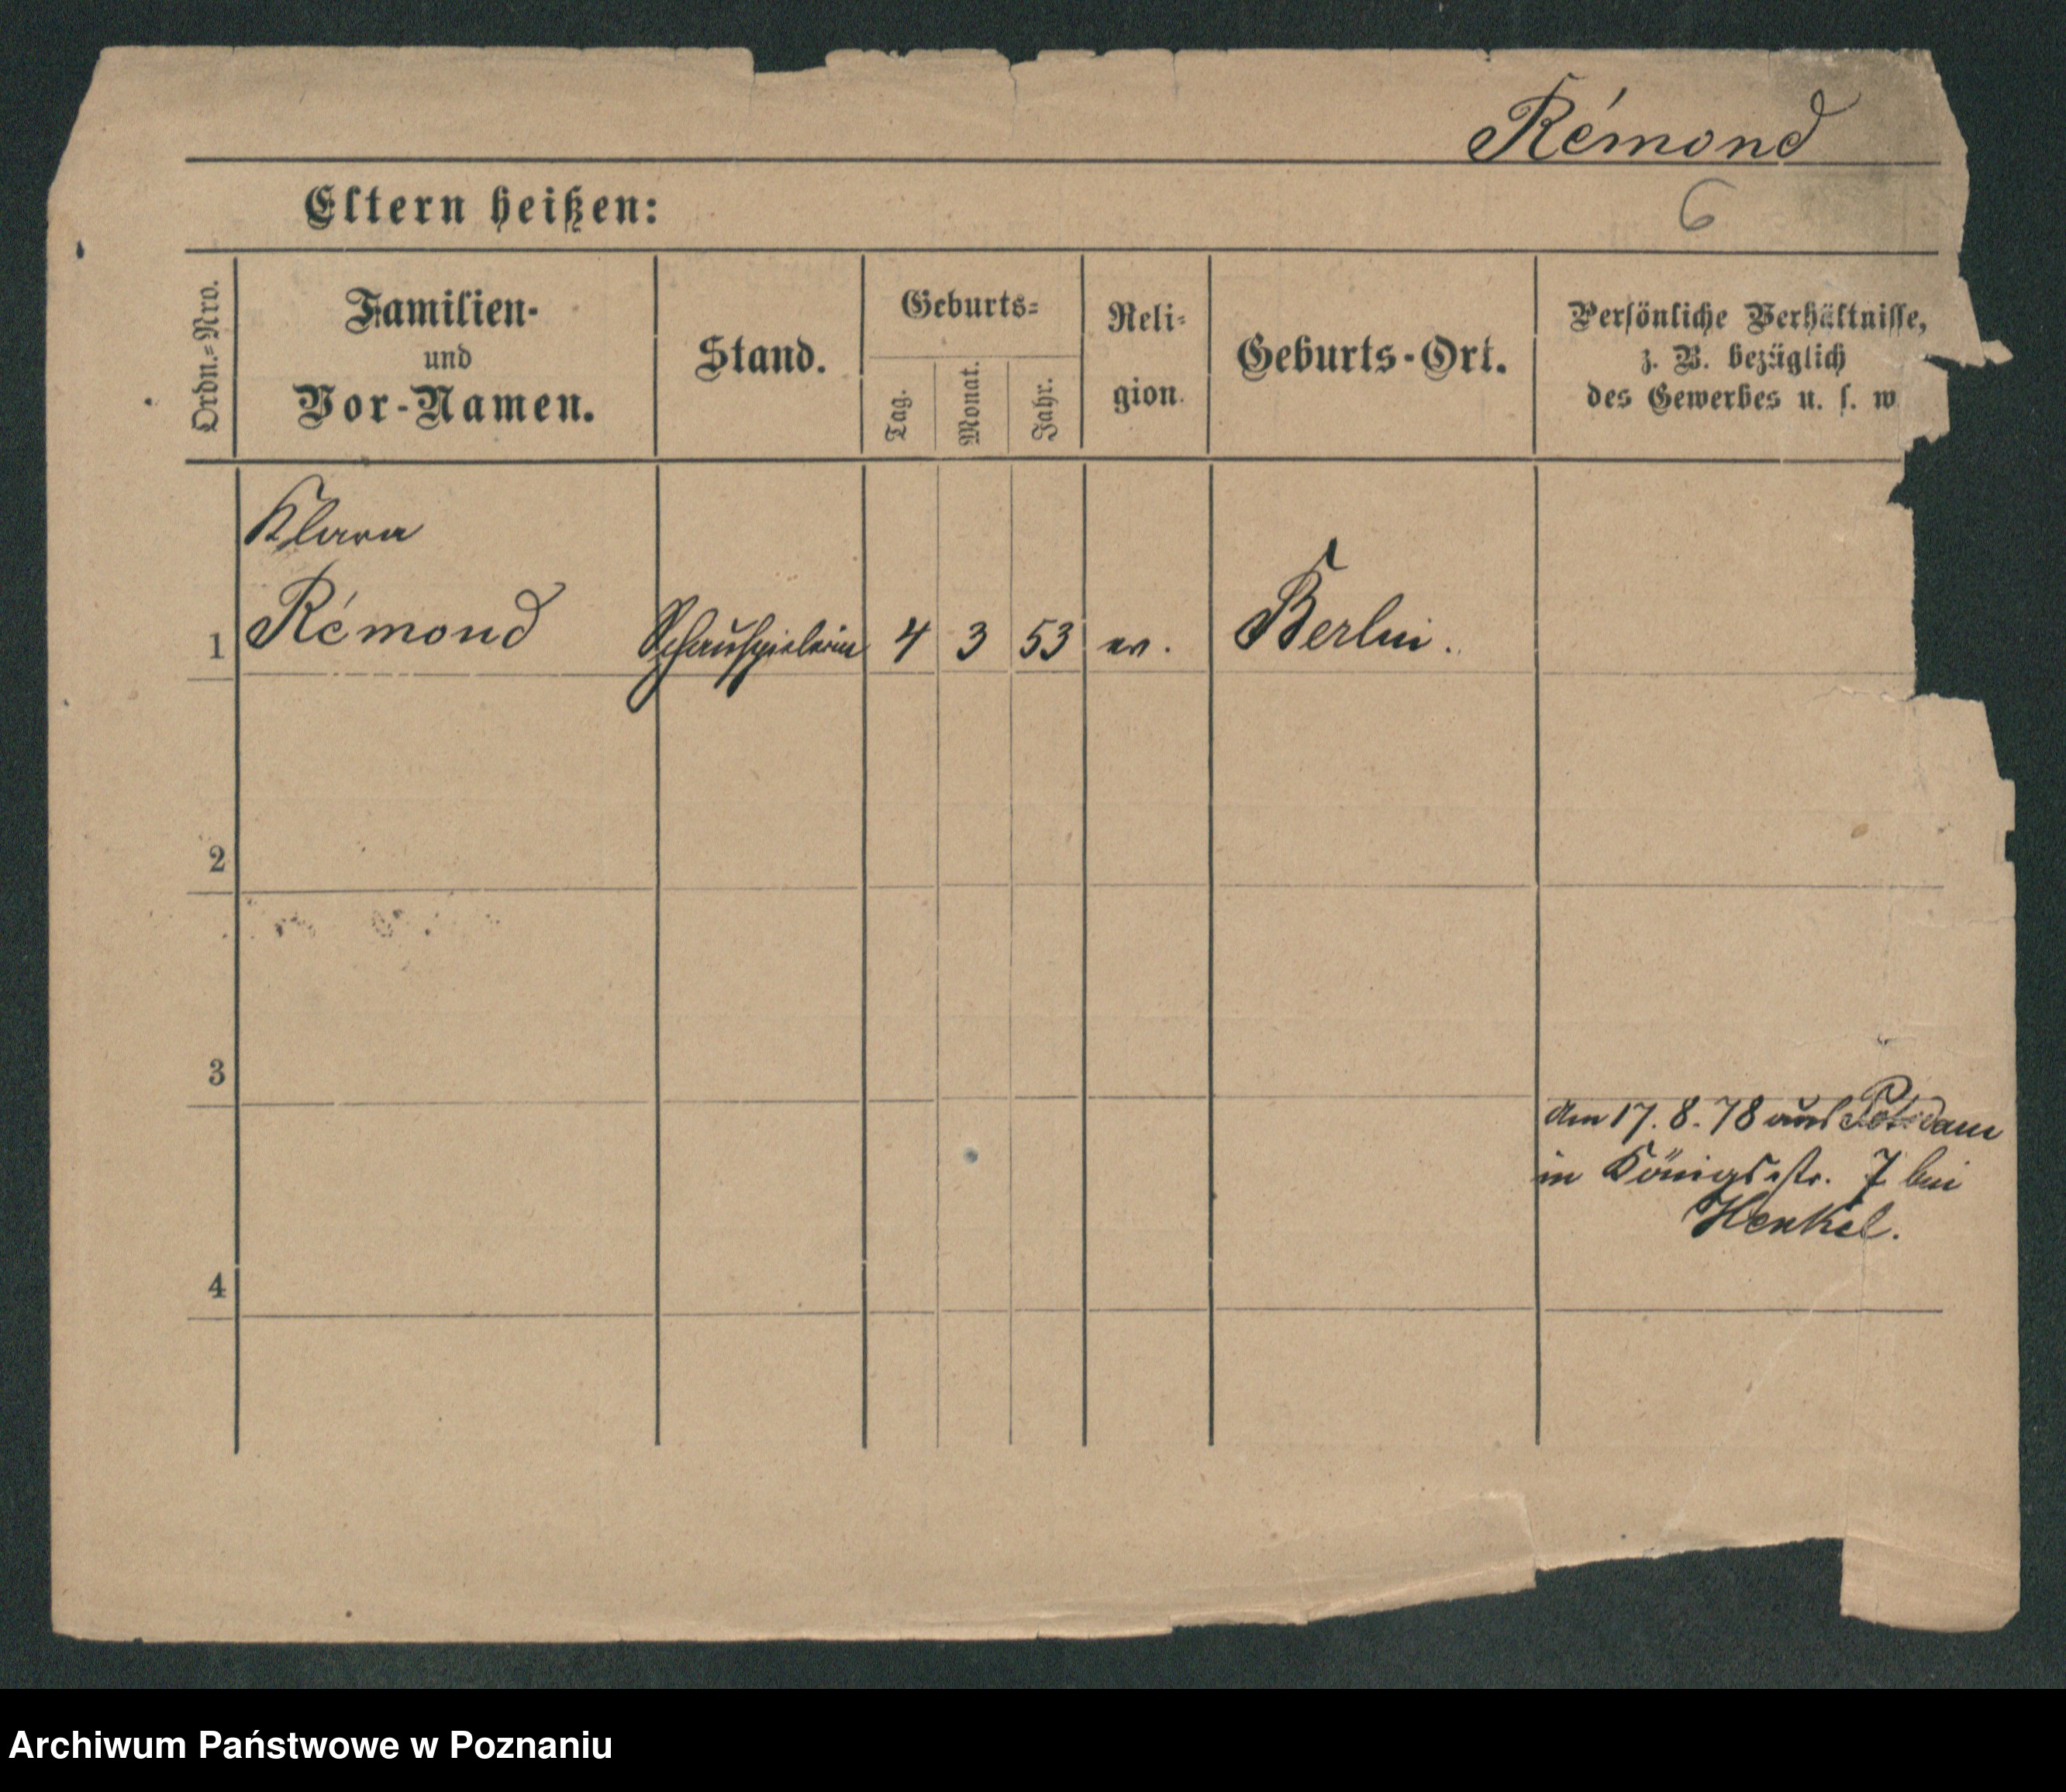 Rémond
6
Eltern heißen:
Ordn.=Nro.
Familien-
und
Vor-Namen.
Stand.
Geburts=
Tag.
Monat.
Jahr.
Reli-
gion.
Geburts-Ort.
Persönliche Verhältnisse,
z. B. bezüglich
des Gewerbes u. s. w
Klara
1 Rémond Schauspielerin 4 3 53 ev. Berlin.
2
3
am 17. 8. 78 aus Potsdam
in Königsstr. 7 bei
Henkel.
4
Archiwum Państwowe w Poznaniu